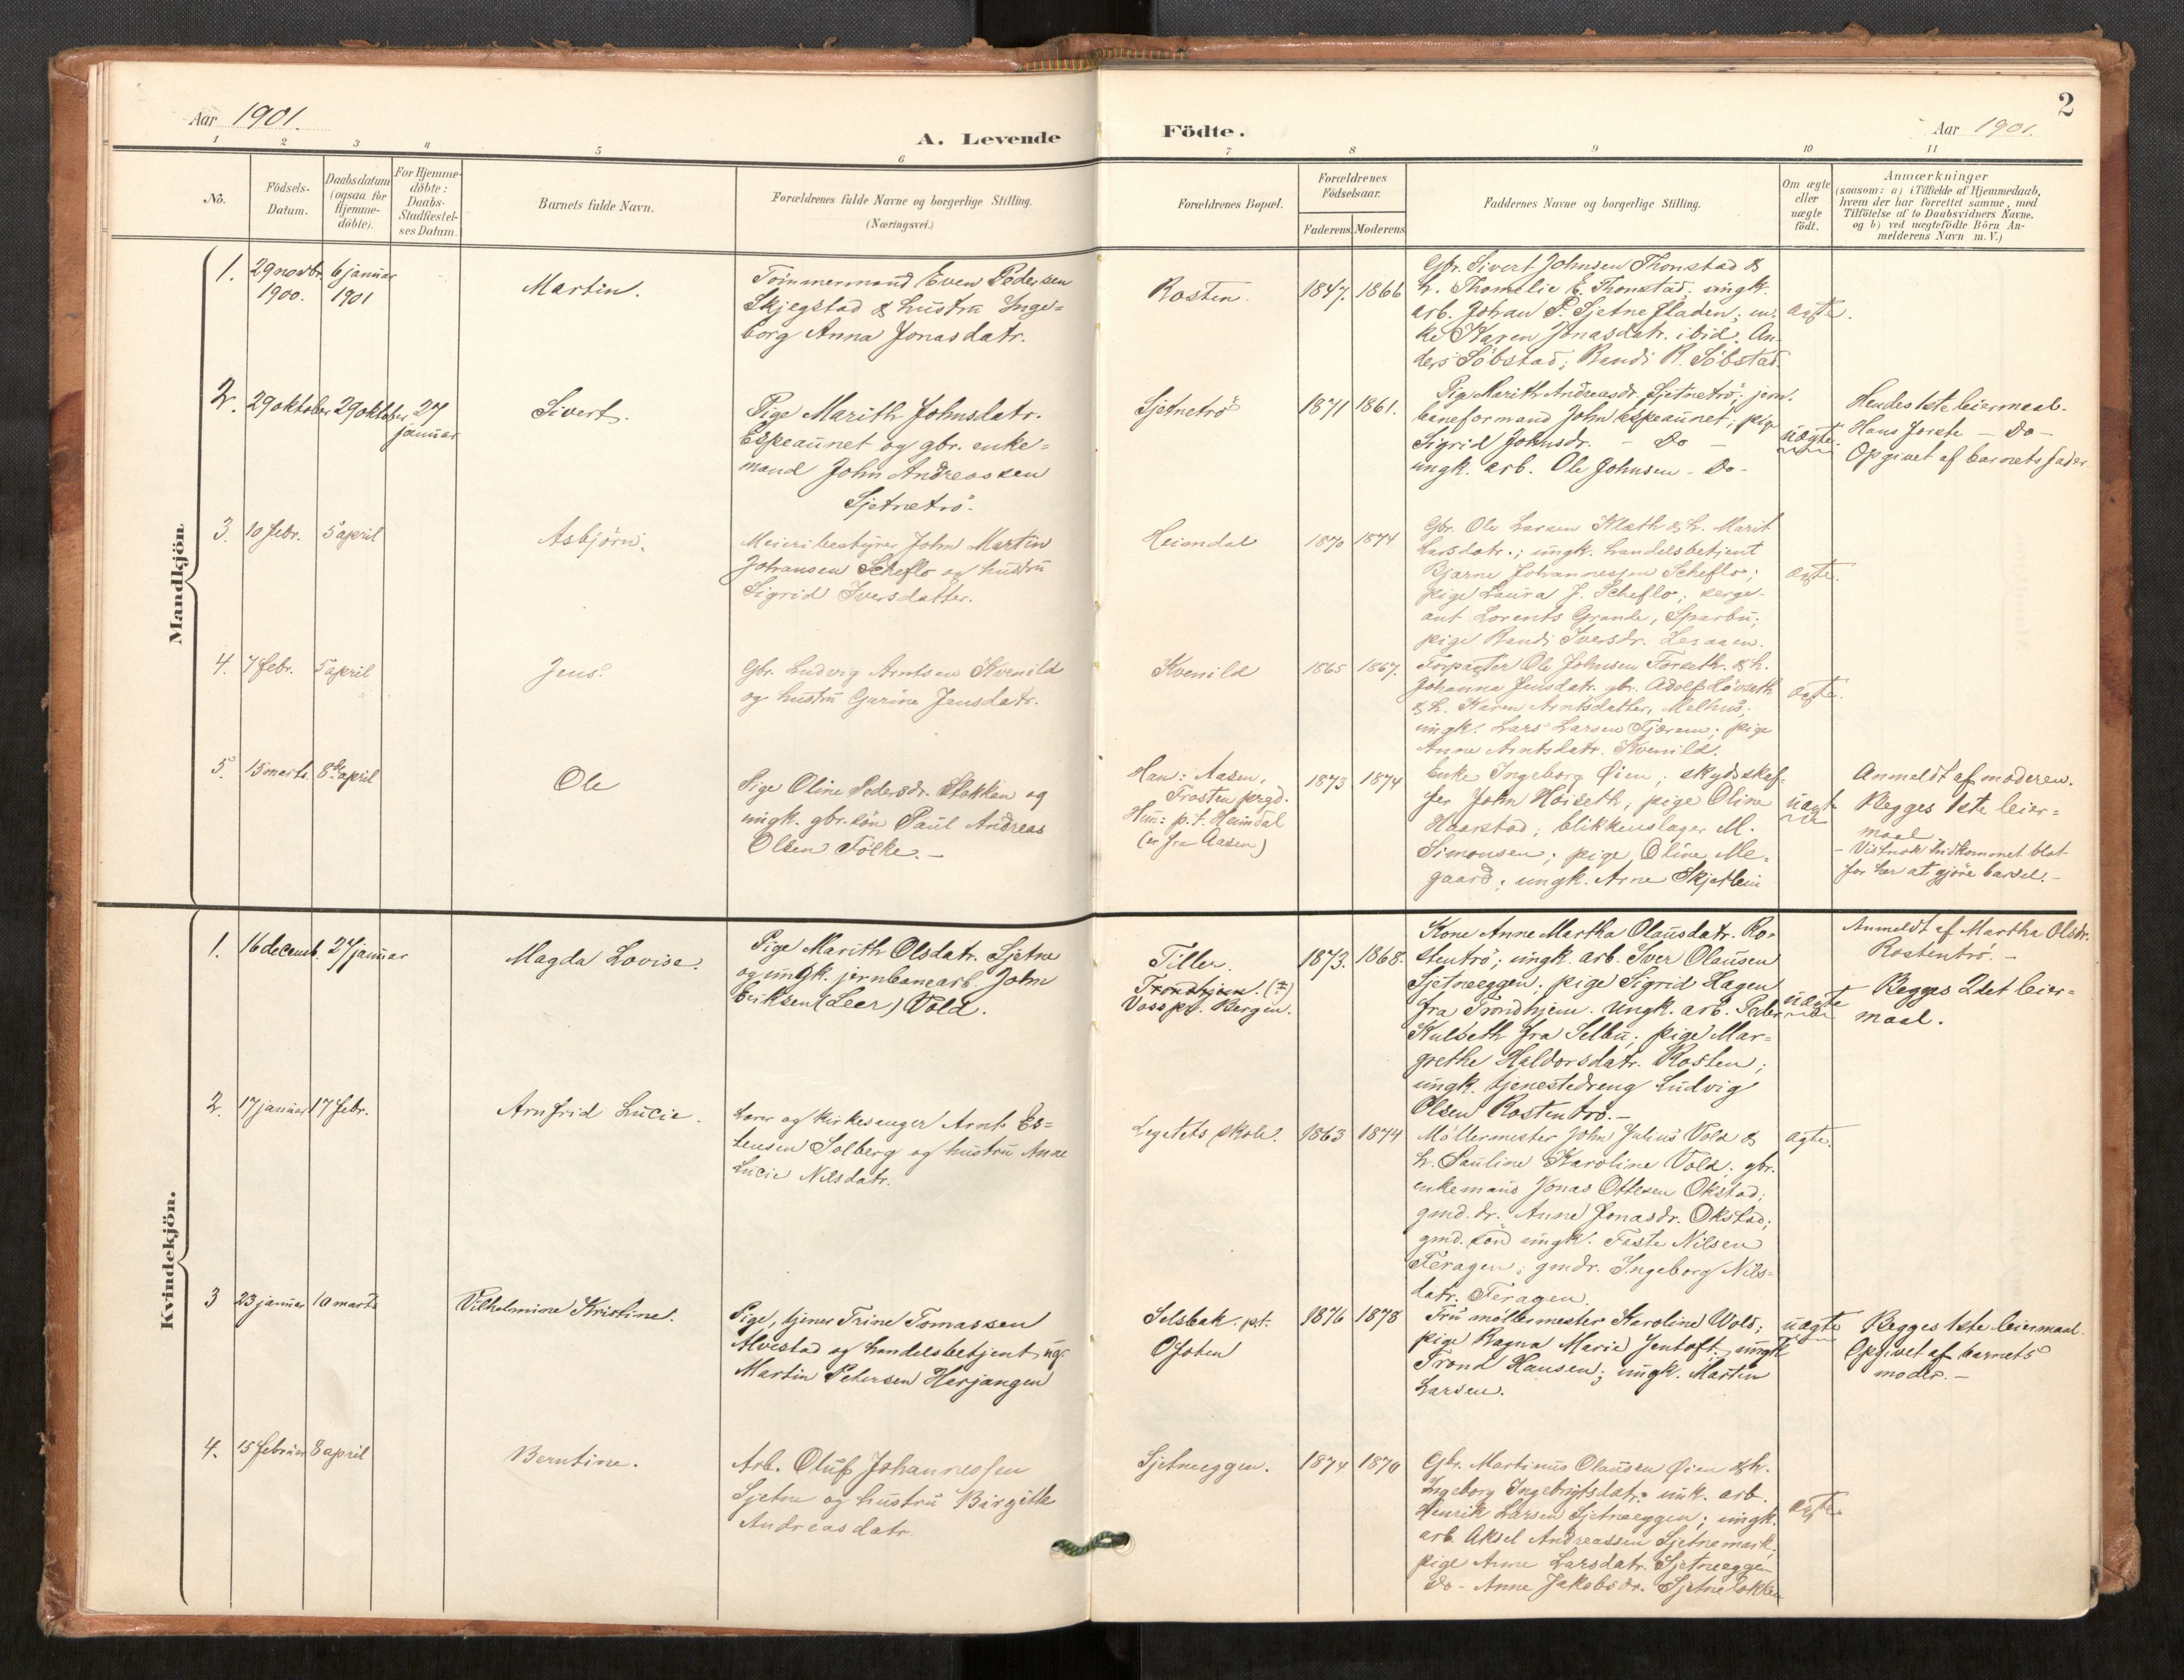 Aar 1901.
A. Levende Födte.
Aar 1901.
2
1 2 3 4 5 6 7 8 9 10 11
No.
Födsels-Datum.
Daabsdatum (ogsaa for Hjemme-döbte).
For Hjemme-döbte: Daabs-Stadfæstel-ses Datum.
Barnets fulde Navn.
Forældrenes fulde Navne og borgerlige Stilling.
(Næringsvei.)
Forældrenes Bopæl.
Forældrenes Födselsaar.
Faderens Moderens
Faddernes Navne og borgerlige Stilling.
Om ægte eller uægte födt.
Anmærkninger
(saasom: a) i Tilfælde af Hjemmedaab,
hvem der har forrettet samme, med
Tilföielse af to Daabsvidners Navne.
og b) ved uægtefödte Börn An-
melderens Navn m.V.)
Mandkjön.
1. 29 novbr. 1900. 6 januar 1901
Martin.
Tömmermand Even Pedersen
Skjegstad & hustru Inge=
borg Anna Jonasdatr.
Rosten.
1847. 1866
Gbr. Sivert Johnsen Thonstad &
h. Thomelie E. Thonstad; ungk.
arb. Johan P. Sjetnefladen; en-
ke Karen Jonasdatr. ibid. An-
ders Söbstad; Randi R. Söbstad.
ægte.
2. 29 oktober 29 oktober 27 januar
Sivert.
Pige Marith Johnsdatr.
Espeaunet og gbr. enke=
mand John Andreassen
Sjetnetrö.
Sjetnetrö
1871 1861.
Pige Marith Andreasdr. Sjetnetrö; jern-
baneformand John Espeaunet; pige
Sigrid Johnsdr. - Do -
ungk. arb. Ole Johnsen - Do -
uægte.
Hendes 1ste leiermaal.
Hans förste - Do -
Opgivet af barnets fader.
3. 10 febr. 5 april
Asbjörn.
Meieribestyrer John Martin
Johansen Scheflo og hustru
Sigrid Iversdatter.
Heimdal
1870 1874
Gbr. Ole Larsen Klæth & h. Marit
Larsdatr.; ungk. handelsbetjent
Bjarne Johannessen Scheflo;
pige Laura J. Scheflo; serge-
ant Lorents Grande, Sparbu;
pige Randi Iversdr. Leraaen.
ægte.
4. 7 febr. 5 april
Jens.
Gbr. Ludvig Arntsen Kvenild
og hustru Gurine Jensdatr.
Kvenild
1865 1867.
Forpagter Ole Johnsen Forseth & h.
Johanna Jensdatr. gbr. Adolf Lövseth
& h. Karen Arntsdatter, Melhus;
ungk. Lars Larsen Tjærem; pige
Anne Arntsdatr. Kvenild.
ægte.
5. 15 marts. 8de april
Ole
Pige Oline Pedersdr. Stokkan og
ungk. gbr. sön Paul Andreas
Olsen Fölke. -
Han: Aasen,
Frosten prgd.
Hun: p.t. Heimdal
(er fra Aasen)
1873 1874
Enke Ingeborg Øien; skydsskaf-
fer John Höiseth, pige Oline
Haarstad; blikkenslager M.
Simonsen; pige Oline Me-
gaard; ungk. Arne Skjetlein
uægte
Anmeldt af moderen.
Begges 1ste leier=
maal.
- Vistnok hidkommet blot
for her at gjöre barsel. -
Kvindekjön.
1. 16 decemb. 27 januar
Magda Lovise.
Pige Marith Olsdatr. Sjetne
og ungk. jernbanearb. John
Eriksen (Leer) Vold.
Tiller.
Trondhjem. (#)
Voss pr. Bergen.
1873. 1868.
Kone Anne Martha Olausdatr. Ro-
stentrö; ungk. arb. Iver Olausen
Sjetneeggen. pige Sigrid Hagen
fra Trondhjem. Ungk. arb. Peder
Kulseth fra Selbu; pige Mar=
grethe Haldorsdatr. Rosten;
ungk. tjenestedreng Ludvig
Olsen Rostentrö. -
uægte
Anmeldt af Martha Olsdr.
Rostentrö. -
Begges 2det leier=
maal.
2. 17 januar 17 febr.
Arnfrid Lucie.
Lærer og kirkesanger Arnt Es=
tensen Solberg og hustru Anne
Lucie Nilsdatr.
Legatets skole.
1863 1874
Möllermester John Julius Vold &
h. Pauline Karoline Vold; gbr.
enkemand Jonas Ottesen Okstad;
gmd. dr. Anne Jonasdr. Okstad;
gmd. sön ungk. Faste Nilsen
Feragen; gmdr. Ingeborg Nils-
datr. Feragen.
ægte.
3 23 januar 10 marts
Vilhelmine Kristine.
Pige, tjener Trine Tomassen
Alvestad og handelsbetjent ug.
Martin Petersen Herjangen
Selsbak p.t.
Ofoten
1876 1878
Fru möllermester Karoline Vold;
pige Ragna Marie Jentoft; ungk
Trond Hansen; ungk. Martin
Larsen.
uægte
Begges 1ste leiermaal.
Opgivet af barnets
moder. -
4. 15 februar 8 april
Berntine.
Arb. Oluf Johannessen
Sjetne og hustru Birgitte
Andreasdatr.
Sjetneeggen.
1874 1870
Gbr. Martinus Olausen Øien & h.
Ingeborg Ingebrigtsdatr. unk. arb.
Henrik Larsen Sjetneeggen; ungk.
arb. Aksel Andreassen Sjetnemark;
pige Anne Larsdatr. Sjetneeggen
do- Anne Jakobsdr. Sjetneløkken
ægte